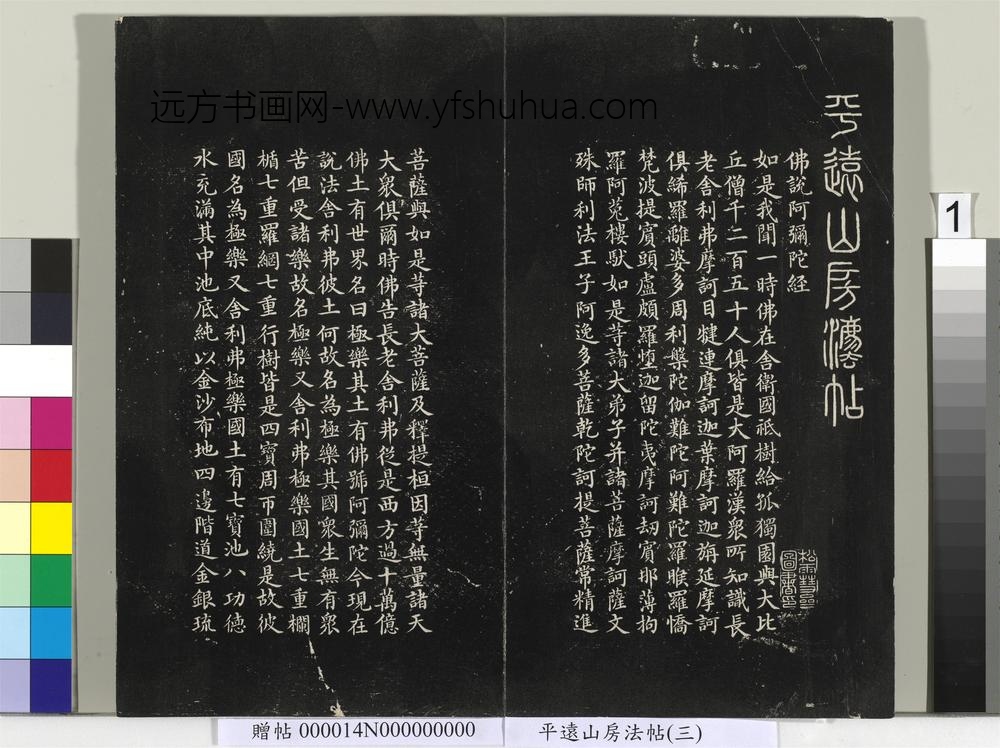 远方书画网-www.yfshuhua.com
平遠山房法帖
佛說阿彌陀経
如是我聞一時佛在舍衛國祇樹給孤獨園與大比
丘僧千二百五十人俱皆是大阿羅漢衆所知識長
老舍利弗摩訶目犍連摩訶迦葉摩訶迦旃延摩訶
俱絺羅離婆多周利槃陀伽難陀阿難陀羅睺羅憍
梵波提賓頭盧頗羅墮迦留陀夷摩訶劫賓那薄拘
羅阿㝹樓馱如是等諸大弟子并諸菩薩摩訶薩文
殊師利法王子阿逸多菩薩乾陀訶提菩薩常精進
菩薩與如是等諸大菩薩及釋提桓因等無量諸天
大衆俱爾時佛告長老舍利弗從是西方過十萬億
佛土有世界名曰極樂其土有佛號阿彌陀今現在
說法舍利弗彼土何故名為極樂其國衆生無有衆
苦但受諸樂故名極樂又舍利弗極樂國土七重欄
楯七重羅網七重行樹皆是四寶周帀圍繞是故彼
國名為極樂又舍利弗極樂國土有七寶池八功徳
水充滿其中池底純以金沙布地四邊階道金銀琉
1
贈帖 000014N000000000
平遠山房法帖(三)